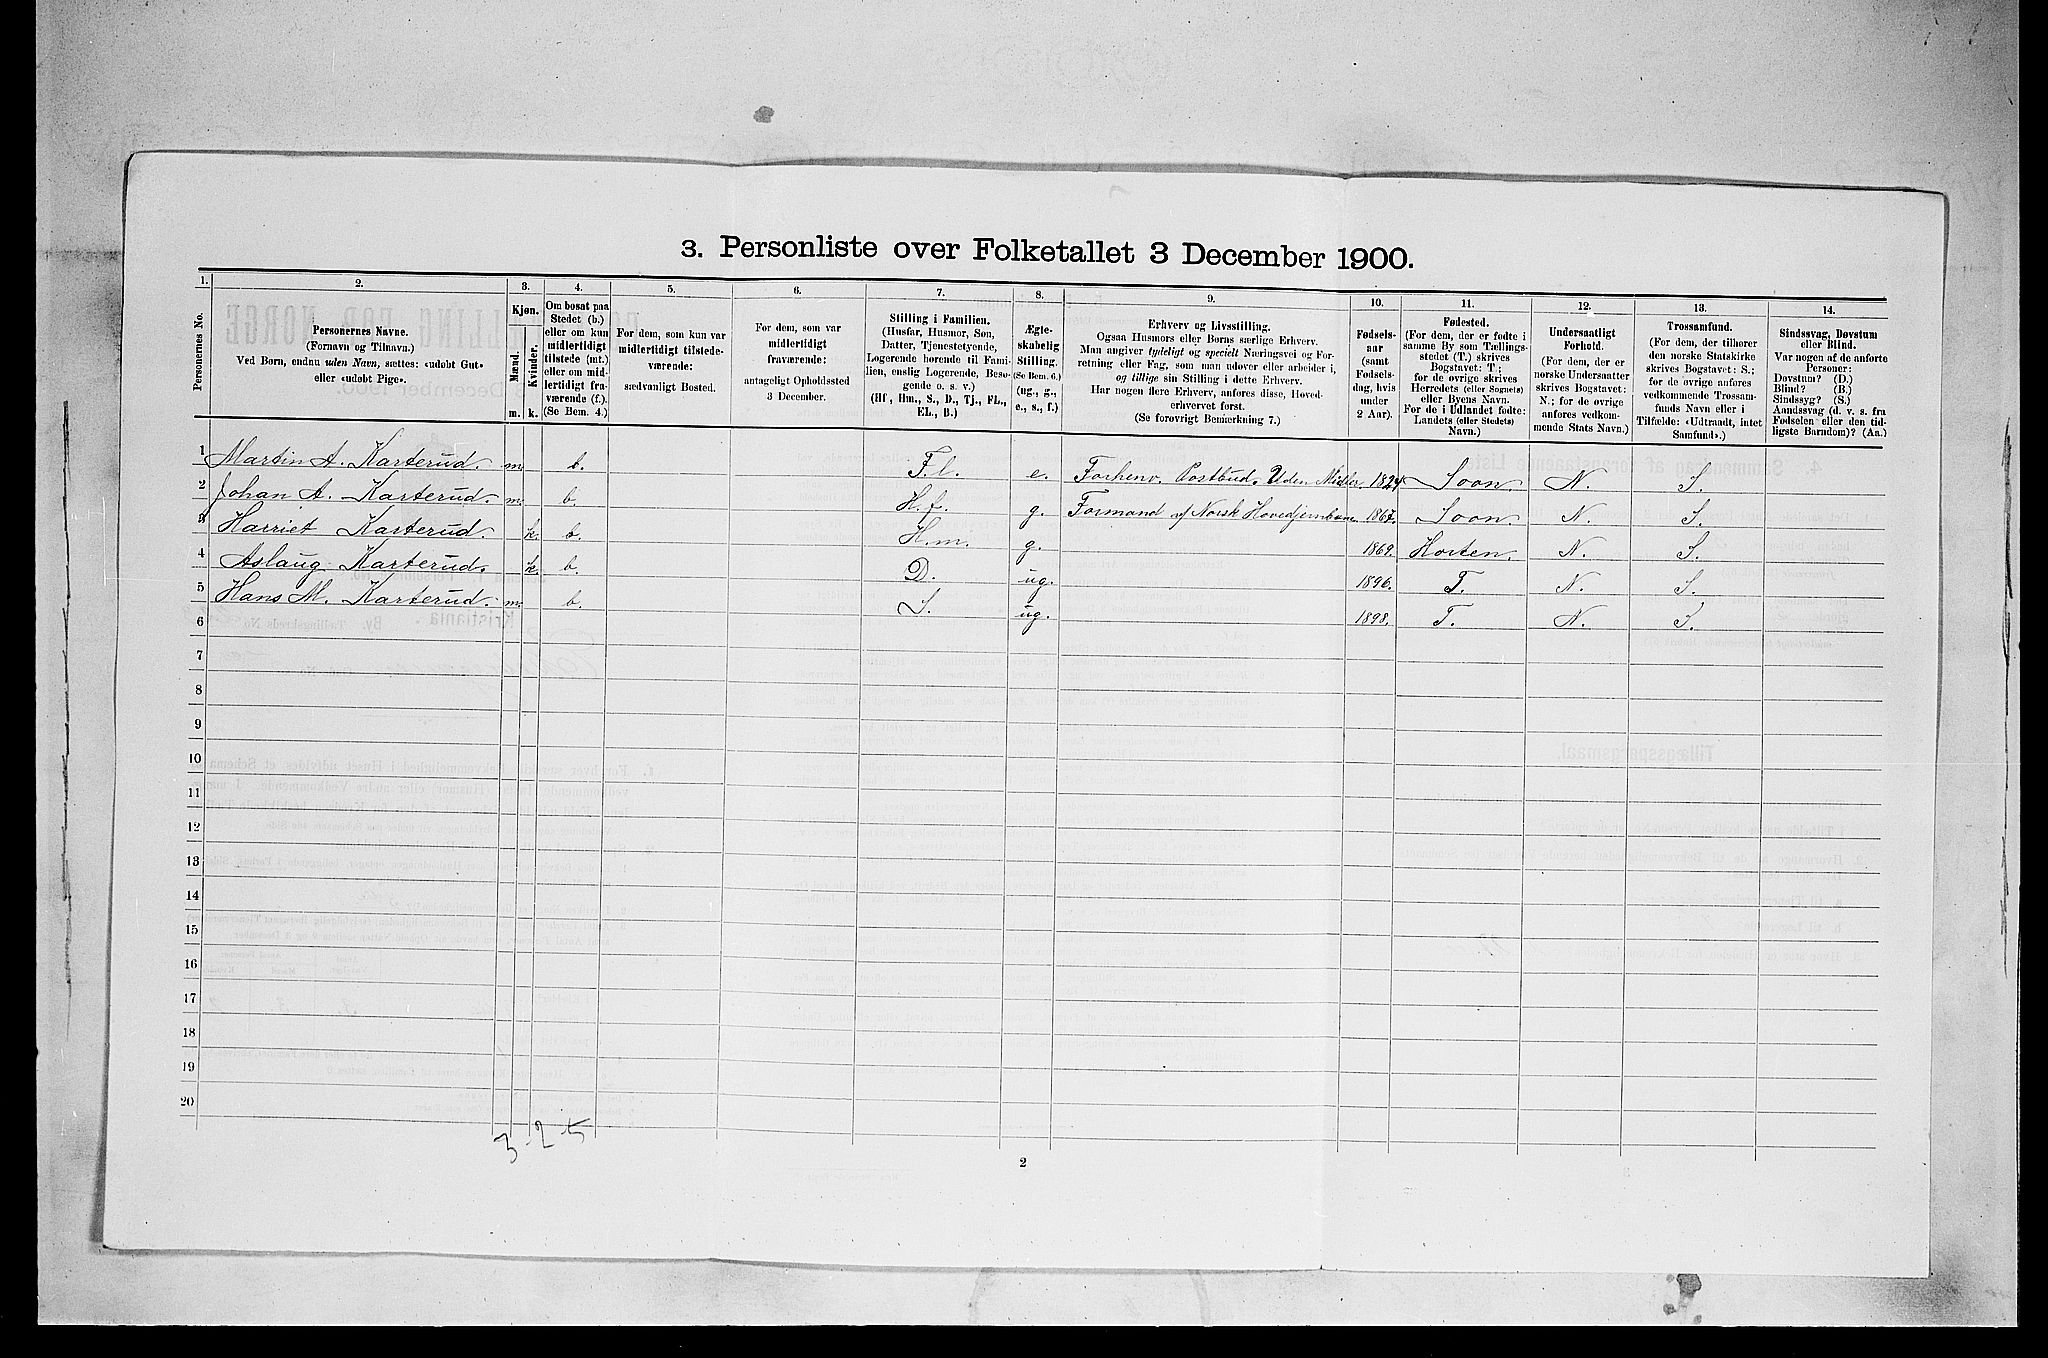 3. Personliste over Folketallet 3 December 1900.
1. 2. 3. 4. 5. 6. 7. 8. 9. 10. 11. 12. 13. 14.
Personernes No.
Personernes Navne.
(Fornavn og Tilnavn.)
Ved Børn, endnu uden Navn, sættes: «udøbt Gut»
eller «udøbt Pige».
Kjøn.
Mænd.
Kvinder.
m. k.
Om bosat paa
Stedet (b.)
eller om kun
midlertidigt
tilstede (mt.)
eller om mid-
lertidigt fra-
værende (f.).
(Se Bem. 4.)
For dem, som kun var
midlertidigt tilstede-
værende:
sædvanligt Bosted.
For dem, som var
midlertidigt
fraværende:
antageligt Opholdssted
3 December.
Stilling i Familien.
(Husfar, Husmor, Søn,
Datter, Tjenestetyende,
Logerende hørende til Fami-
lien, enslig Logerende, Besø-
gende o. s. v.)
(Hf., Hm., S., D., Tj., FL.,
EL., B.)
Ægte-
skabelig
Stilling.
(Se Bem. 6.)
(ug., g.,
e., s., f.)
Erhverv og Livsstilling.
Ogsaa Husmors eller Børns særlige Erhverv.
Man angiver tydeligt og specielt Næringsvei og For-
retning eller Fag, som man udøver eller arbeider i,
og tillige sin Stilling i dette Erhverv.
Har nogen flere Erhverv, anføres disse, Hoved-
erhvervet først.
(Se forøvrigt Bemerkning 7.)
Fødsels-
aar
(samt
Fødsels-
dag, hvis
under
2 Aar).
Fødested.
(For dem, der er fødte i
samme By som Tællings-
stedet (T.) skrives
Bogstavet: T;
for de øvrige skrives
Herredets (eller Sognets)
eller Byens Navn.
For de i Udlandet fødte:
Landets (eller Stedets)
Navn.)
Undersaatligt
Forhold.
(For dem, der er
norske Undersaatter
skrives Bogstavet:
N.; for de øvrige
anføres vedkom-
mende Stats Navn.)
Trossamfund.
(For dem, der tilhører
den norske Statskirke
skrives Bogstavet: S.;
for de øvrige anføres
vedkommende Trossam-
funds Navn eller i
Tilfælde: «Udtraadt, intet
Samfund».)
Sindssvag, Døvstum
eller Blind.
Var nogen af de anførte
Personer:
Døvstum? (D.)
Blind? (B.)
Sindssyg? (S.)
Aandssvag (d. v. s. fra
Fødselen eller den tid-
ligste Barndom)? (Aa.)
1 Martin A. Karterud. m. b. F.l. e. Forhenv. Postbud. Uden Midler. 1824 Soon. N. S.
2 Johan A. Karterud. m. b. H.f. g. Formand af Norsk Hovedjernbane 1867. Soon. N. S.
3 Harriet Karterud. k. b. H.m. g. 1869. Horten. N. S.
4 Aslaug Karterud. k. b. D. ug. 1896. T. N. S.
5 Hans M. Karterud. m. b. S. ug. 1898. T. N. S.
6
7
8
9
10
11
12
13
14
15
16
17
18
19
20
3-2-5
2